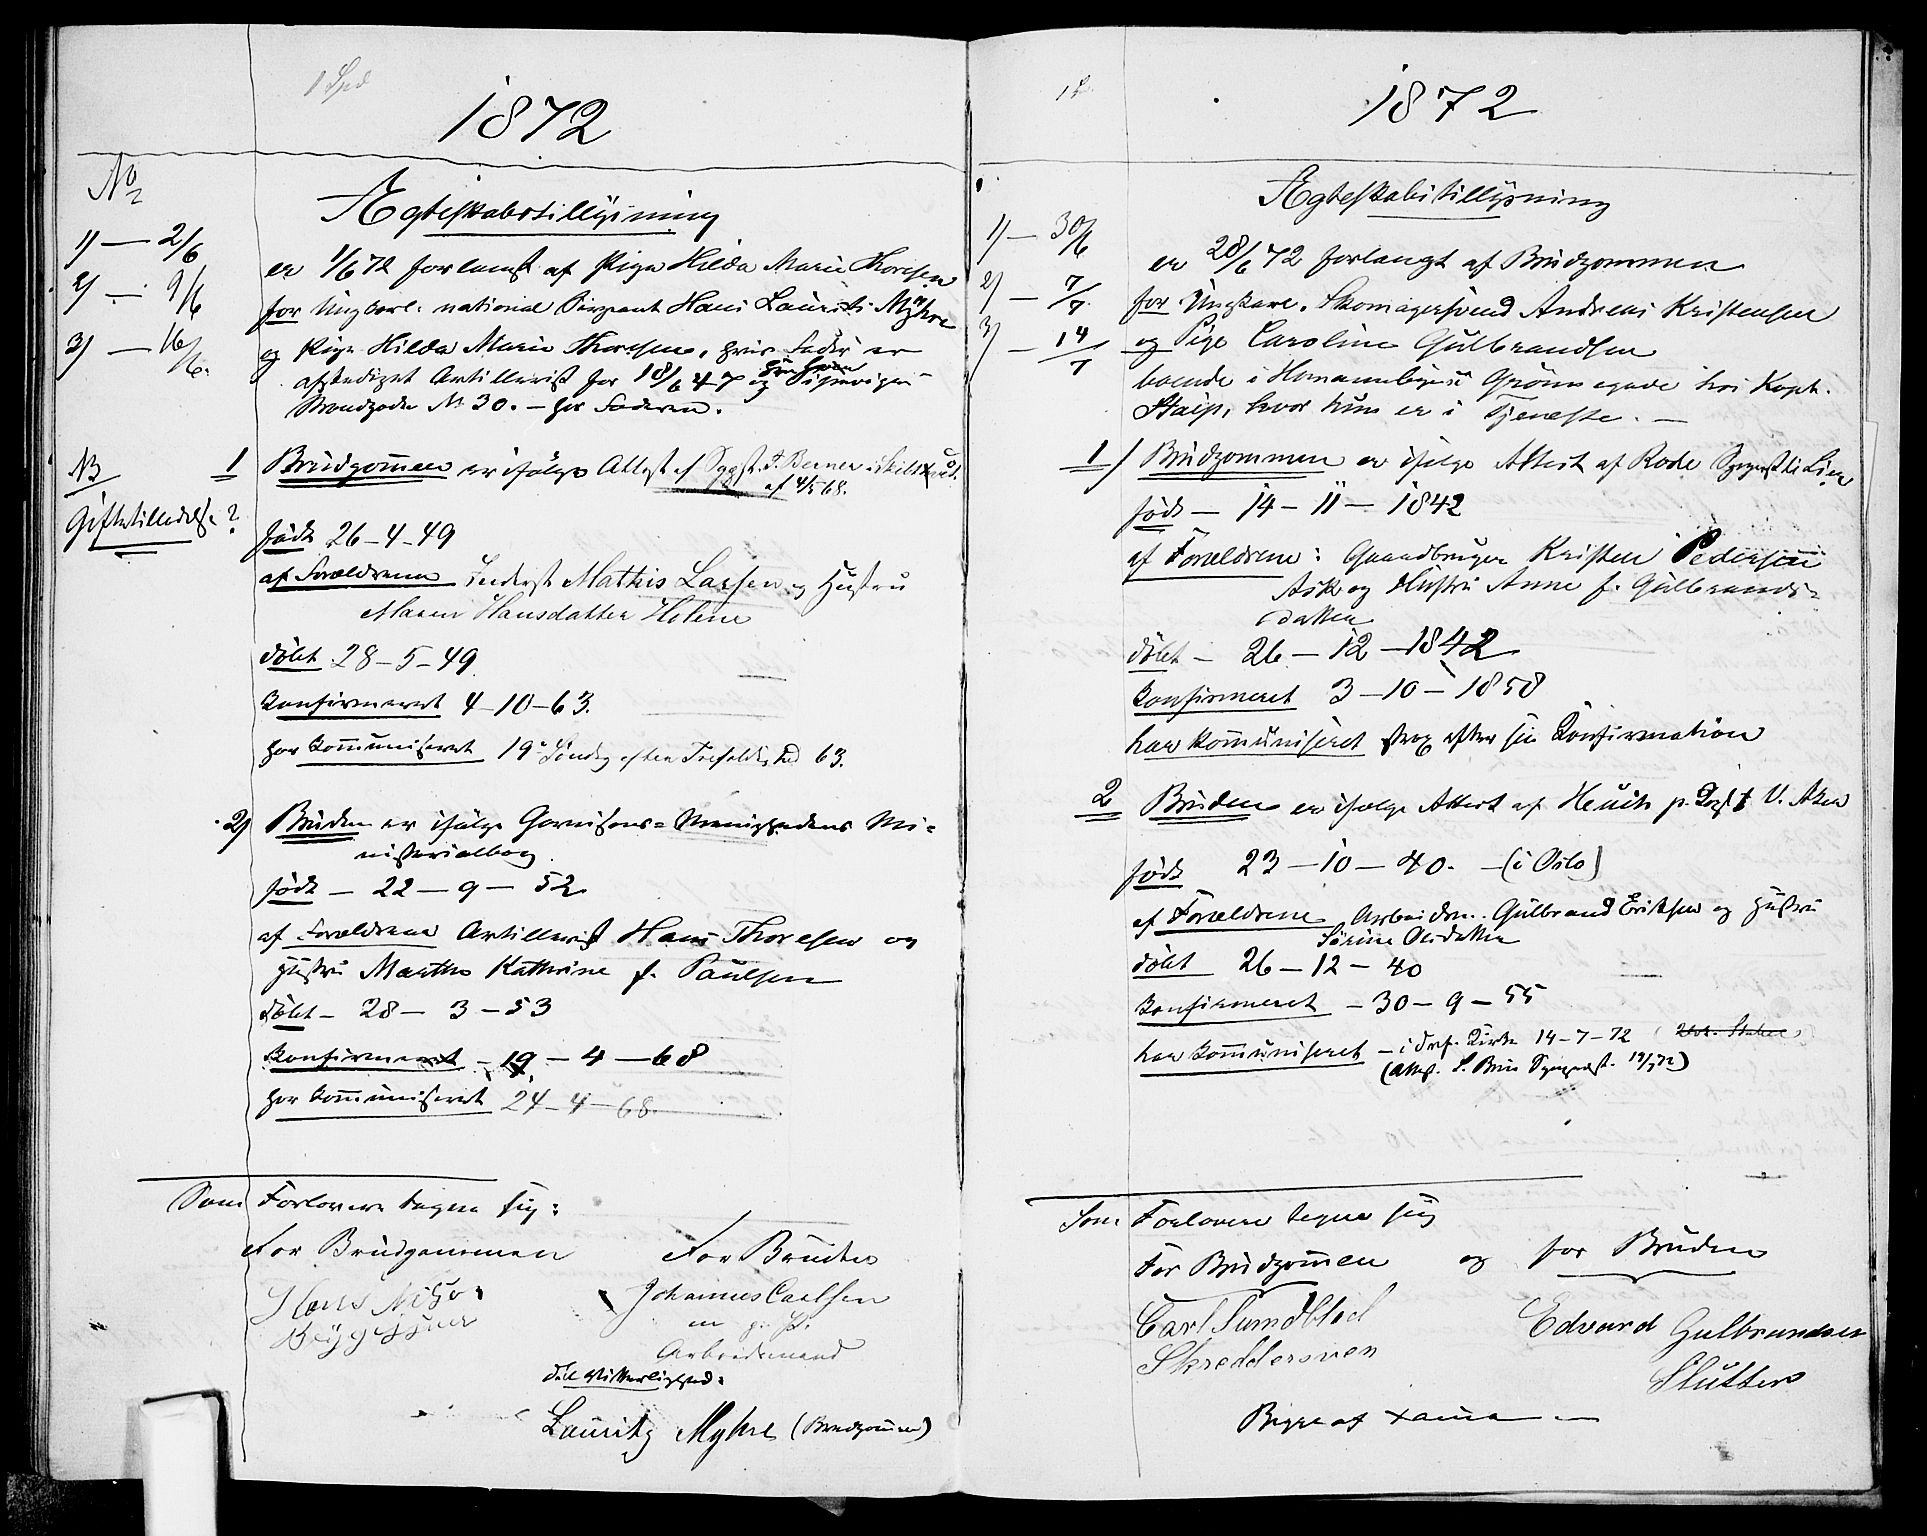 1 Spd
1872
No
1) — 2/6
2) — 9/6
3) — 16/6.
Ægteskabstillysning
er 1/6 72 forlangt af Pige Hilda Marie Thoresen
for Ungkarl. national Sergeant Hans Laurits Myhre
og Pige Hilda Marie Thoresen, hvis Fader er
afskediget Artillerist før 18/6 47 og
Strandgade No 30. — hos Faderen.
NB
Giftetilladelse?
1 Brudgommen er ifølge Attest af Sgpst. J. Berner
af 4/5 68.
født 26-4-49
af Forældrene Inderst Mathis Larsen og Hustru
Maren Hansdatter Holene
døbt 28-5-49
konfirmeret 4-10-63.
har kommuniseret 19e Søndag efter Trefoldighed 63.
2) Bruden er ifølge Garnisons-Menighedens Mi-
nisterialbog
født — 22 — 9 — 52
af Forældrene Artillerist Hans Thoresen og
Hustru Marthe Kathrine f. Paulsen
døbt — 28 — 3 — 53
konfirmeret — 19 — 4 — 68
har kommuniseret 24-4-68.
Som Forlovere tegne sig:
For Brudgommen For Bruden
Hans
Johannes Carlsen
m. p. P.
Arbeidsmand
til Vitterlighed:
Lauritz Myhre (Brudgommen)
1872
1) — 30/6
2) — 7/7.
3) — 14/7
Ægteskabstillysning
er 28/6 72 forlangt af Brudgommen
for Ungkarl. Skomagersvend Andreas Kristensen
og Pige Caroline Gulbrandsen
boende i Grønnegade hos Kapt.
hvor hun er i Tjeneste. —
1) Brudgommen er ifølge Attest af Rode Sgpst til Lier
født — 14 — 11 — 1842
af Forældrene: Gaardbruger Kristen Pedersen
Ask og Hustru Anne f. Gulbrands-
datter
døbt — 26 — 12 — 1842
konfirmeret 3 — 10 — 1858
har kommuniseret strax efter sin Konfirmation
2 Bruden er ifølge Attest af Heuch p. t V. Aker
født 23 — 10 — 40. — (i Oslo)
af Forældrene Arbeidsm. Gulbrand Eriksen og Hustru
Sørine Olsdatter
døbt 26 — 12 — 40
konfirmeret — 30 — 9 — 55
har kommuniseret — i Tref. Kirke 14-7-72
(Attest. 19/7 72)
Som Forlovere tegne sig
For Brudgommen og for Bruden
Carl Sundblad Edvard Gulbrandsen
Skreddersven Slutter
Begge af Xania —